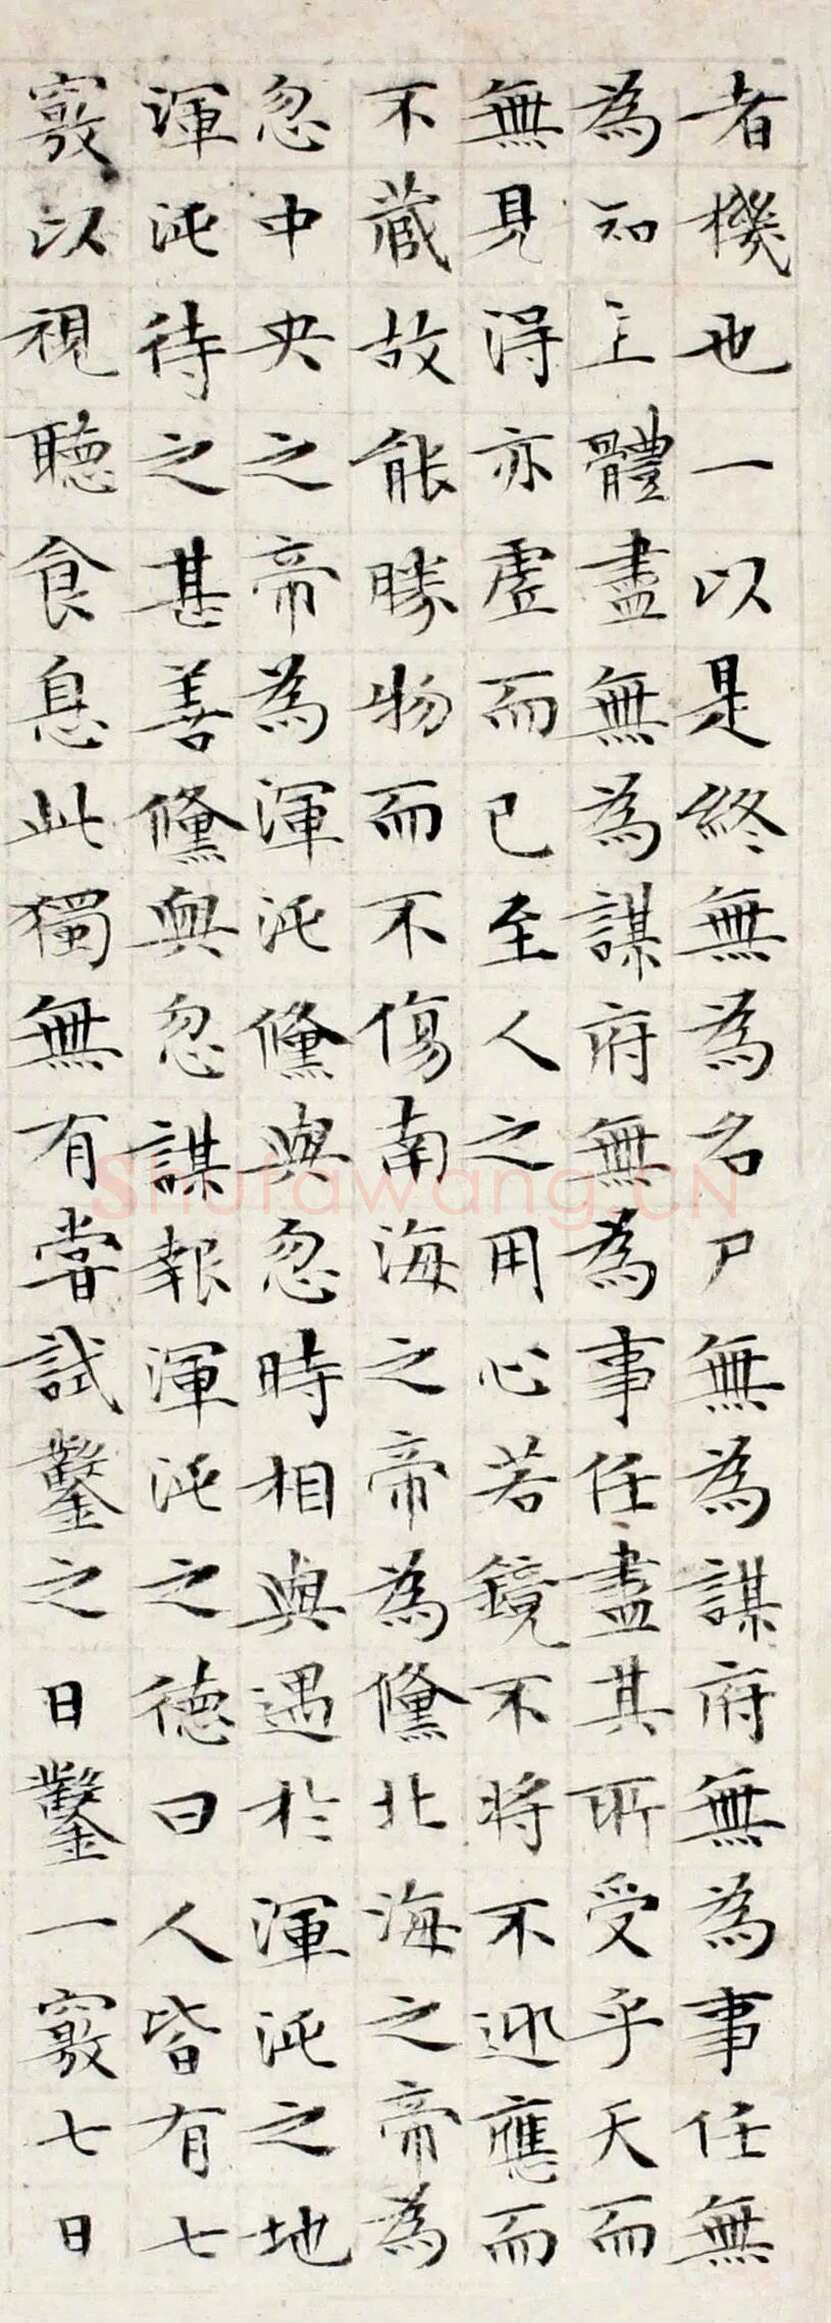 者機也一以是終無為名尸無為謀府無為事任無
為知主體盡無為謀府無為事任盡其所受乎天而
無見得亦虛而已至人之用心若鏡不將不迎應而
不藏故能勝物而不傷南海之帝為儵北海之帝為
忽中央之帝為渾沌儵與忽時相與遇於渾沌之地
渾沌待之甚善儵與忽謀報渾沌之德曰人皆有七
竅以視聽食息此獨無有嘗試鑿之日鑿一竅七日
Shufawang.CN